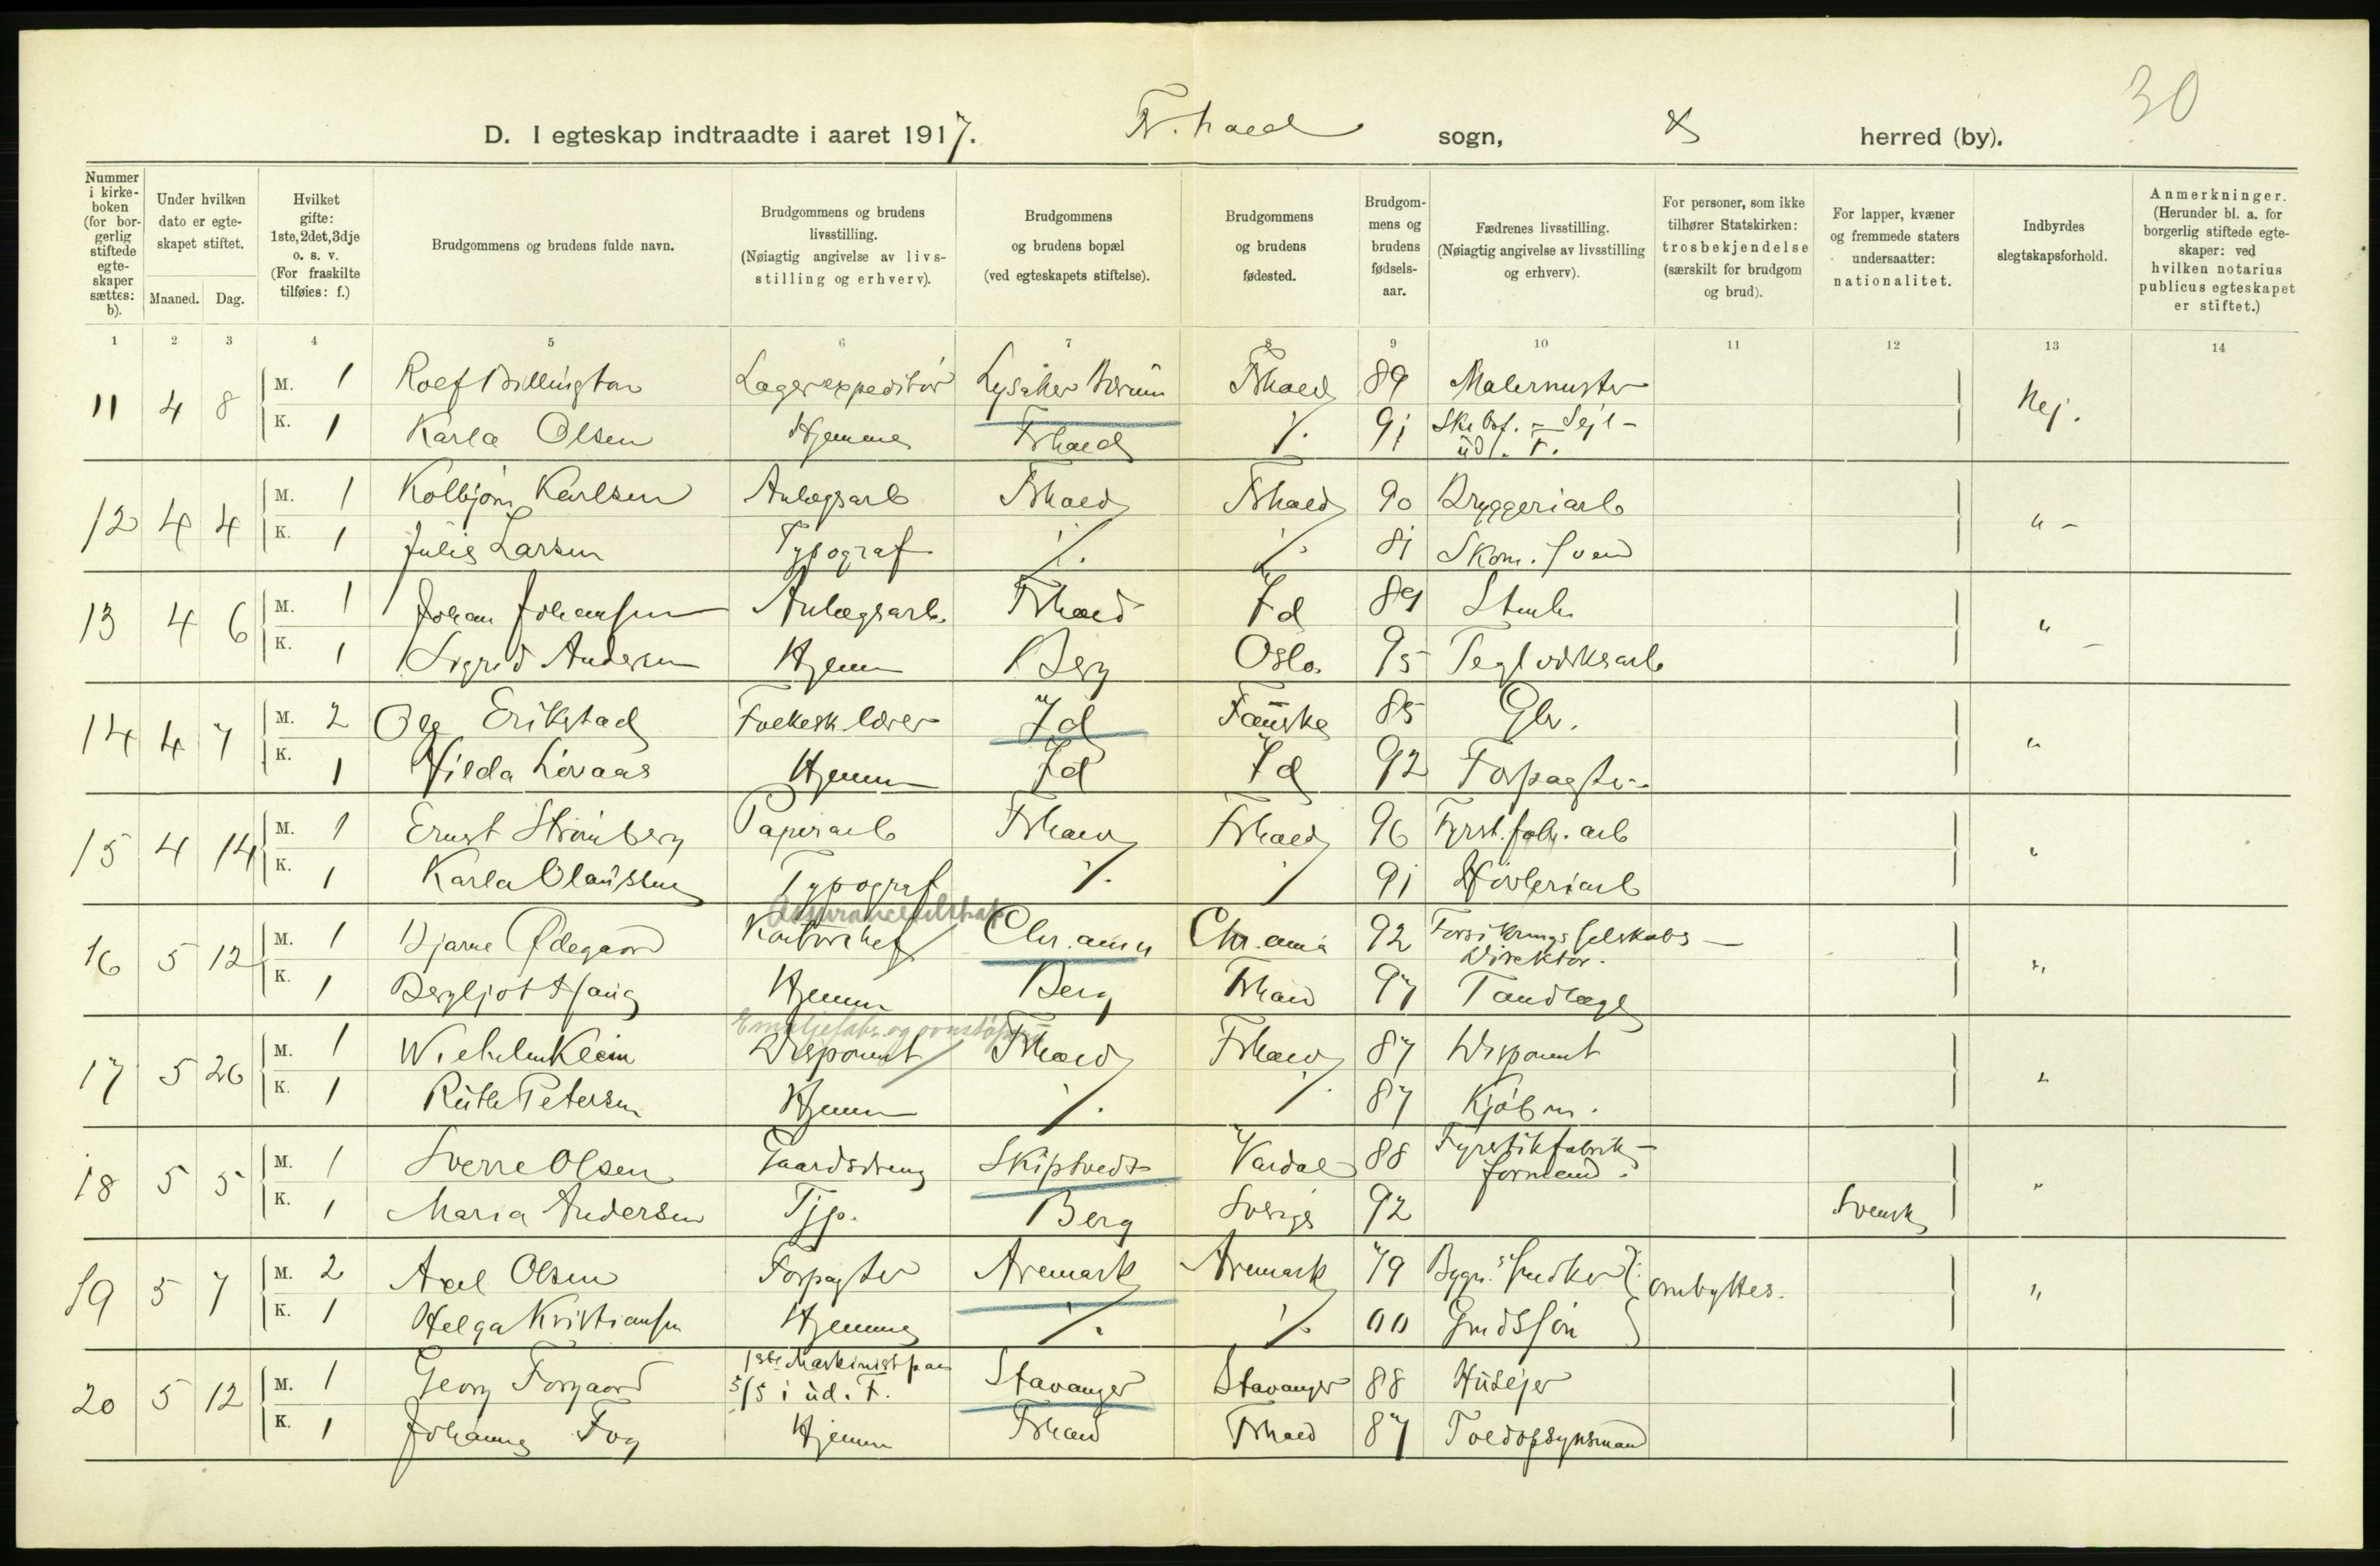 30
D. I egteskap indtraadte i aaret 1917. Fr.hald sogn, & herred (by).
Nummer i kirke-boken (for bor-gerlig stiftede egte-skaper sættes: b).
Under hvilken dato er egte-skapet stiftet.
Maaned. Dag.
Hvilket gifte: 1ste, 2det, 3dje o. s. v. (For fraskilte tilføies: f.)
Brudgommens og brudens fulde navn.
Brudgommens og brudens livsstilling. (Nøiagtig angivelse av livs-stilling og erhverv).
Brudgommens og brudens bopæl (ved egteskapets stiftelse).
Brudgommens og brudens fødested.
Brudgom-mens og brudens fødsels-aar.
Fædrenes livsstilling. (Nøiagtig angivelse av livsstilling og erhverv).
For personer, som ikke tilhører Statskirken: trosbekjendelse (særskilt for brudgom og brud).
For lapper, kvæner og fremmede staters undersaatter: nationalitet.
Indbyrdes slegtskapsforhold.
Anmerkninger. (Herunder bl. a. for borgerlig stiftede egte-skaper: ved hvilken notarius publicus egteskapet er stiftet.)
1 2 3 4 5 6 7 8 9 10 11 12 13 14
11 4 8 M. 1 Rolf Billington Lagerexpeditör Lysaker Bærum Frhald 89 Malermester Nej.
K. 1 Karla Olsen Hjemme Frhald ./. 91 Sejl-
üd. F.
12 4 4 M. 1 Kolbjörn Karlsen Anlægsarb Frhald Frhald 90 Bryggeriarb " -
K. 1 Julie Larsen Typograf ./. ./. 81 Skom. svend
13 4 6 M. 1 Johan Johansen Anlægsarb. Frhald Id 89 Stenh. " -
K. 1 Sigrid Andersen Hjemm Berg Oslo. 95 Teglverksarb
14 4 7 M. 2 Ole Erikstad Folkesk.lærer Id Fauske 85 Gbr. "
K. 1 Hilda Løvaas Hjemm Id Id 92 Forpagter
15 4 14 M. 1 Ernst Strömberg Papirarb Frhald Frhald 96 Fyrst.fabr. arb "
K. 1 Karla Olaussen Typograf ./. ./. 91 Høvleriarb
Assuranceselskap
16 5 12 M. 1 Bjarne Ødegaard Kontorchef Chr.ania Chr.ania 92 Forsikringsselskabs-
Direktör. "
K. 1 Bergljot Hjemm Berg Frhald 97 Tandlæge
Emaljefabr. og ovnstøperi
17 5 26 M. 1 Wilhelm Klein Disponent Frhald Frhald 87 Disponent "
K. 1 Ruth Petersen Hjemm ./. ./. 87 Kjöbm.
18 5 5 M. 1 Sverre Olsen Gaardsdreng Skiptvedt Vardal 88 Fyrstikfabrik-
formand. "
K. 1 Maria Andersen Tjp. Berg Sverige 92 Svensk
19 5 7 M. 2 Axel Olsen Forpagter Aremark Aremark 79 Bygn.snedker ombyttes. "
K. 1 Helga Kristiansen Hjemme ./. ./. 00 Grdssön
1ste Maskinist paa
20 5 12 M. 1 Georg Forgaard S/S i üd. F. Stavanger Stavanger 88 Husejer
K. 1 Johanne Fog Hjemm Frhald Frhald 87 Toldopsynsmand